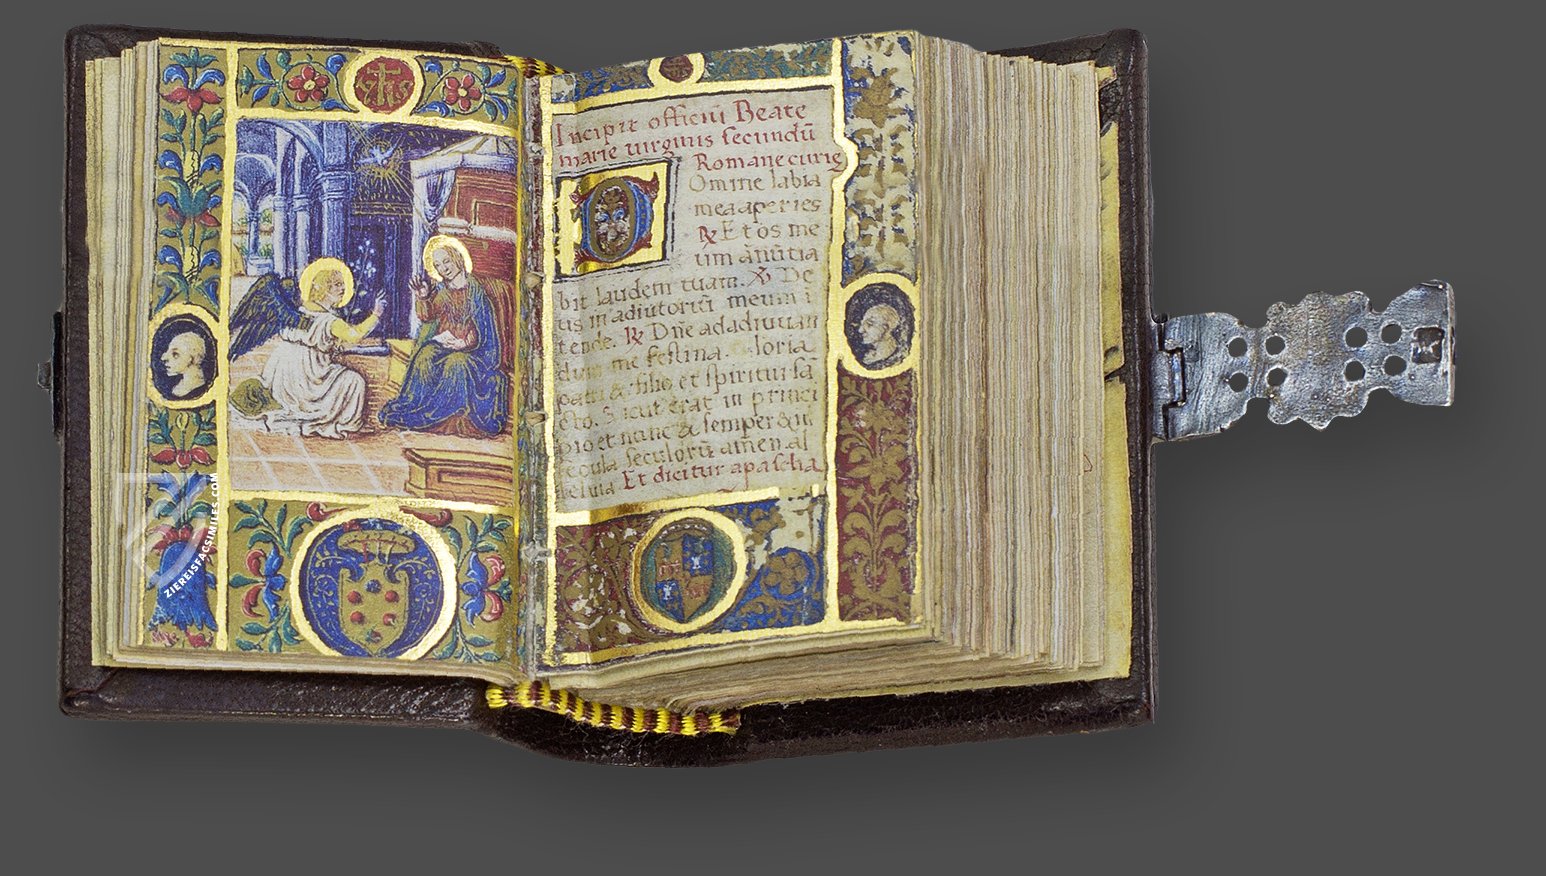 Incipit officiū Beate
marie virginis secundū
Romane curie
Omine labia
mea aperies
℟ Et os me
um ānūtia
bit laudem tuam. ℣ De
us in adiutoriū meum i
tende. ℟ Dn̄e ad adiuuan
dum me festina. Gloria
patri & filio et spiritui sā
cto. Sicut erat in princi
pio et nunc & semper & in
secula seculorū amen. al
leluia Et dicitur a pascha
ZIEREISFACSIMILES.COM